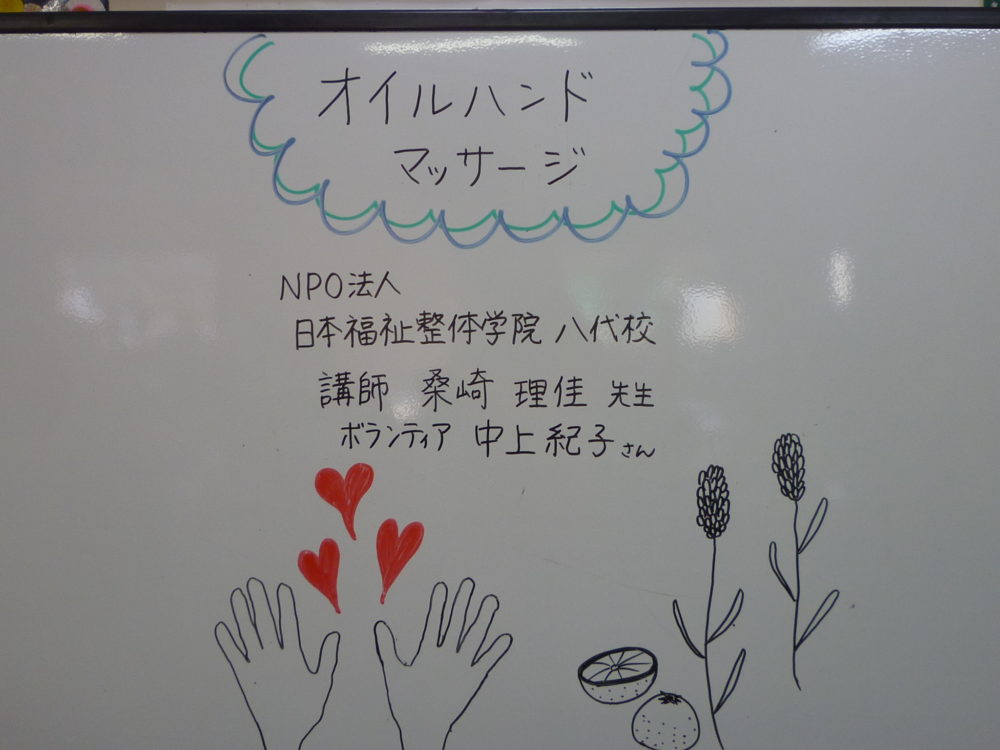 オイルハンド
マッサージ
NPO法人
日本福祉整体学院 八代校
講師 桑崎 理佳 先生
ボランティア 中上紀子さん